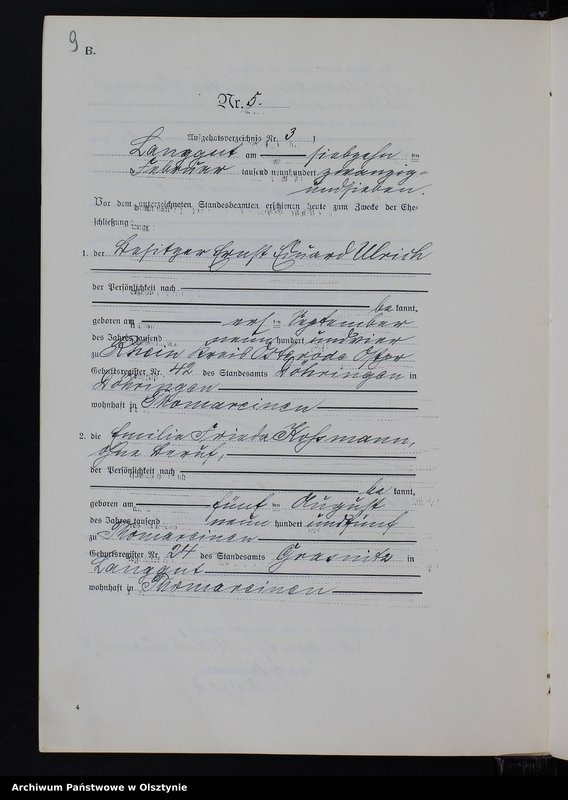 9
B.
Nr. 5.
Aufgebotsverzeichnis Nr. 3
Langgut am siebzehn ten
Februar tausend neunhundert zwanzig-
undsieben.
Vor dem unterzeichneten Standesbeamten erschienen heute zum Zwecke der Ehe-
schließung:
1. der Besitzer Ernst Eduard Ulrich
der Persönlichkeit nach
be kannt,
geboren am elf ten September
des Jahres tausend neun hundert undvier
zu Rhein Kreis Osterode Ostpr
Geburtsregister Nr. 42 des Standesamts Döhringen in
Döhringen
wohnhaft in Thomareinen
2. die Emilie Frieda Koßmann,
ohne Beruf,
der Persönlichkeit nach
be kannt,
geboren am fünf ten August
des Jahres tausend neun hundert undfünf
zu Thomareinen
Geburtsregister Nr. 24 des Standesamts Grasnitz in
Langgut
wohnhaft in Thomareinen
4
Archiwum Państwowe w Olsztynie